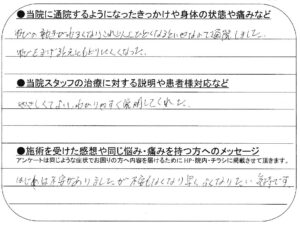 ●当院に通院するようになったきっかけや身体の状態や痛みなど
動きがわるくなりこれ以上ひどくなると
くなった。
●当院スタッフの治療に対する説明や患者様対応など
やさしくてよい、わかりやすく説明してくれた。
●施術を受けた感想や同じ悩み・痛みを持つ方へのメッセージ
アンケートは同じような症状でお困りの方へ内容を届けるためにHP・院内・チラシに掲載させて頂きます。
はじめは不安がありましたが不安もなくなり早くよくなりたい気持です